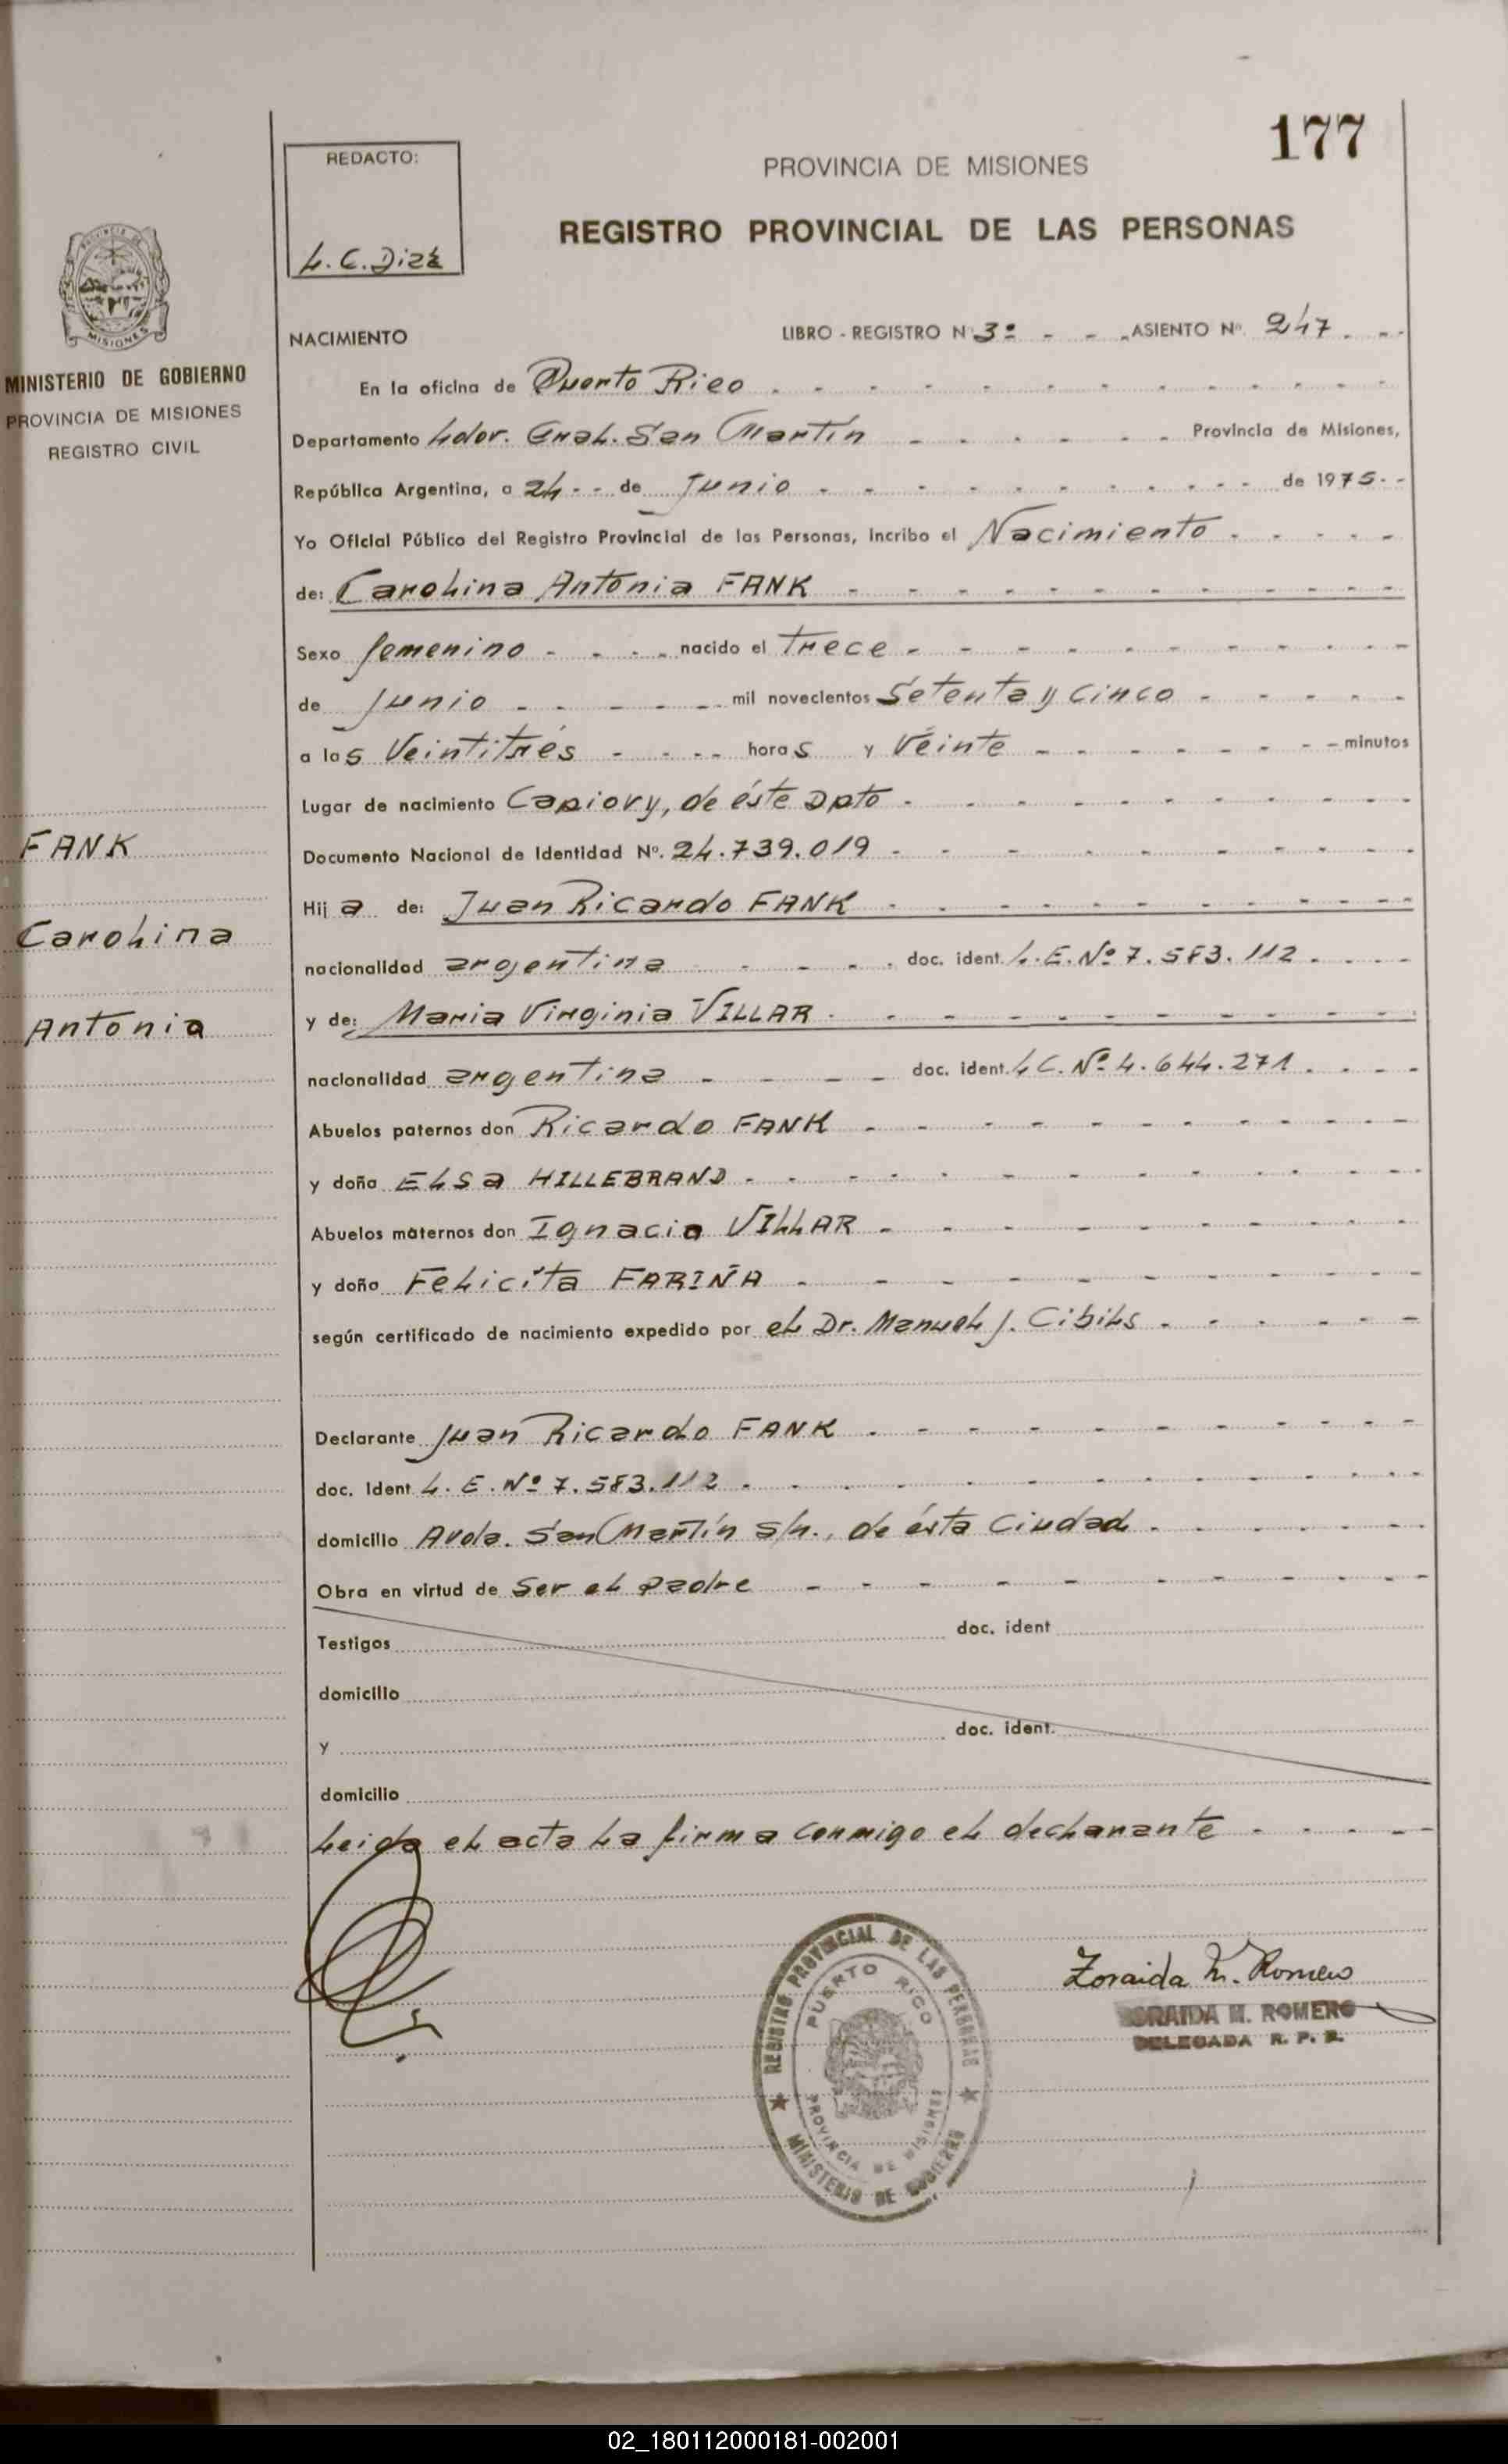 177
REDACTO:
L. C. Diaz
PROVINCIA DE MISIONES
REGISTRO PROVINCIAL DE LAS PERSONAS
MISIONES
MINISTERIO DE GOBIERNO
PROVINCIA DE MISIONES
REGISTRO CIVIL
NACIMIENTO LIBRO - REGISTRO N 3º - - - ASIENTO Nº 247 - - -
En la oficina de Puerto Rico
Departamento Ldor. Gral. San Martín Provincia de Misiones,
República Argentina, a 24 - - de Junio de 1975 - -
Yo Oficial Público del Registro Provincial de las Personas, incribo el Nacimiento
de: Carolina Antonia FANK
Sexo femenino nacido el Trece
de Junio mil novecientos Setenta y Cinco
a las Veintitrés horas y Veinte minutos
Lugar de nacimiento Capiovy, de éste Dpto
Documento Nacional de Identidad Nº. 24.739.019
Hija de: Juan Ricardo FANK
nacionalidad argentina doc. ident. L.E. Nº 7.583.112
y de: Maria Virginia VILLAR
nacionalidad argentina doc. ident. L C. Nº 4.644.271
Abuelos paternos don Ricardo FANK
y doña ELSa HILLEBRAND
Abuelos maternos don Ignacio VILLAR
y doña Felicita FARIÑA
según certificado de nacimiento expedido por el Dr. Manuel J. Cibils
Declarante Juan Ricardo FANK
doc. Ident L. E. Nº 7.583.112
domicilio Avda. San Martín s/n., de ésta Ciudad
Obra en virtud de Ser el Padre
Testigos doc. ident
domicilio
y doc. ident.
domicilio
Leida el acta la firma conmigo el declarante
FANK
Carolina
Antonia
REGISTRO PROVINCIAL DE LAS PERSONAS
PUERTO RICO
PROVINCIA DE MISIONES
MINISTERIO DE GOBIERNO
Zoraida M. Romero
ZORAIDA M. ROMERO
DELEGADA R. P. P.
02_180112000181-002001